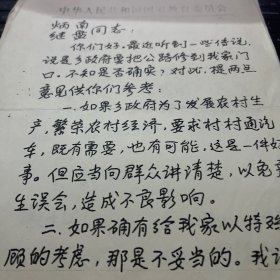 中华人民共和国国家教育委员会
炳南
继盛同志:
你们好。最近听到一些传说,
说是乡政府要把公路修到我家门
口。不知是否确实?对此,提两点
意见供你们参考:
一.如果乡政府为了发展农村生
产,繁荣农村经济,要求村村通汽
车,既有需要,也有可能,这是一件好
事。但应当向群众讲清楚,以免
生误会,造成不良影响。
二.如果确有给我家以特殊
顾的考虑,那是不妥当的。我